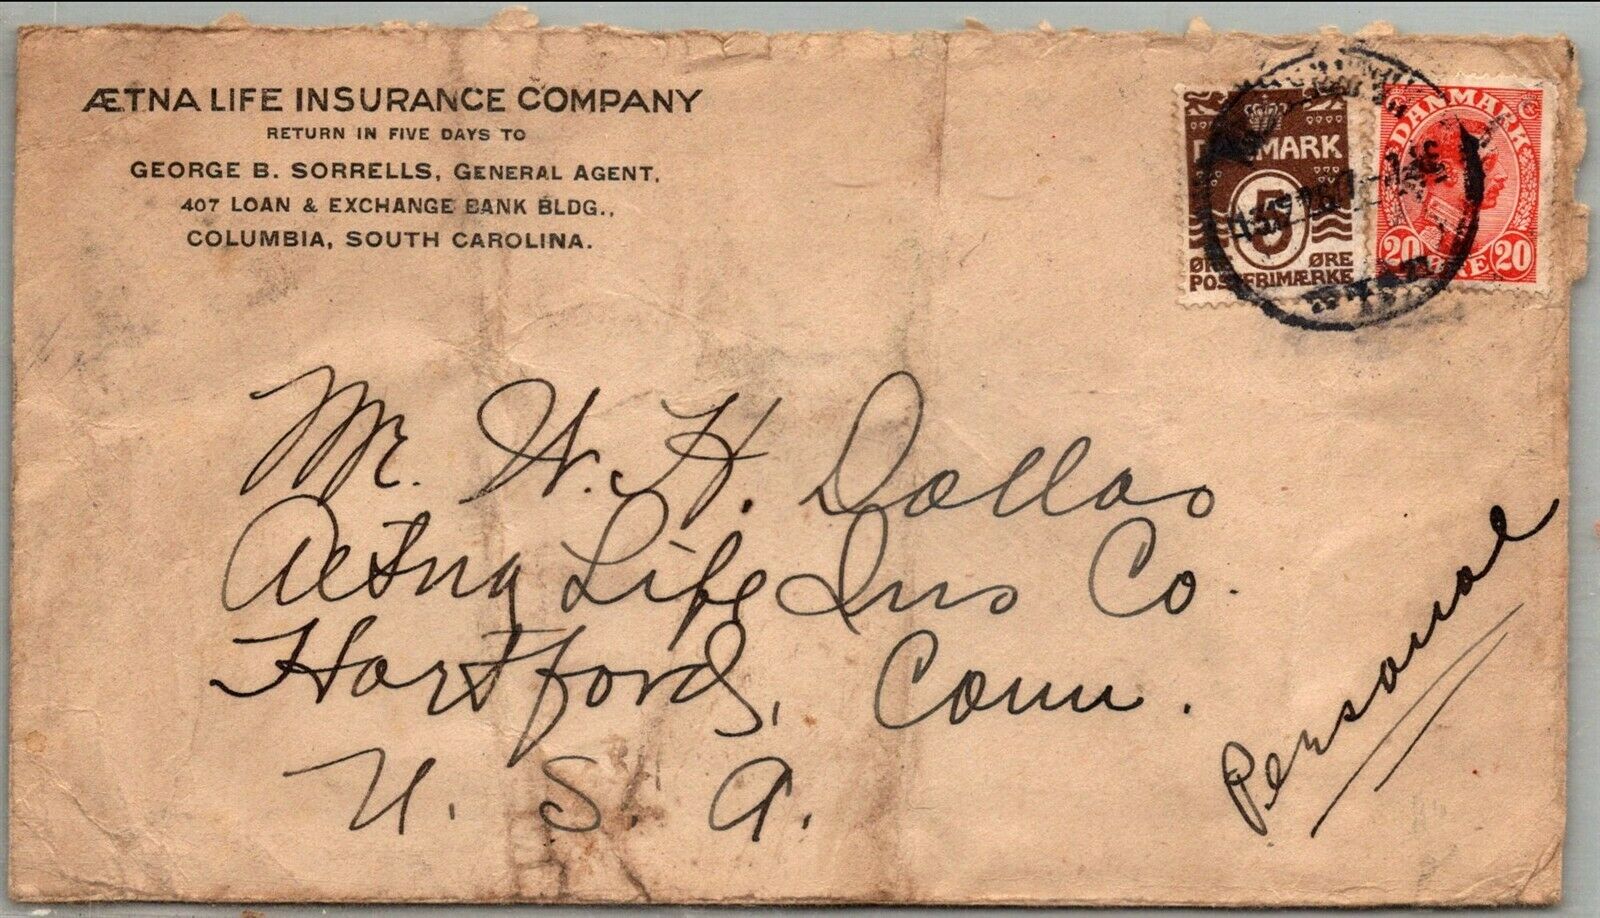 ÆTNA LIFE INSURANCE COMPANY
RETURN IN FIVE DAYS TO
GEORGE B. SORRELLS, GENERAL AGENT,
407 LOAN & EXCHANGE BANK BLDG.,
COLUMBIA, SOUTH CAROLINA.
DANMARK
5
ØRE ØRE
POSTFRIMÆRKE
DANMARK
20 ØRE 20
Mr. W. H. Dallas
Aetna Life Ins Co.
Hartford, Conn.
U. S. A.
Personal